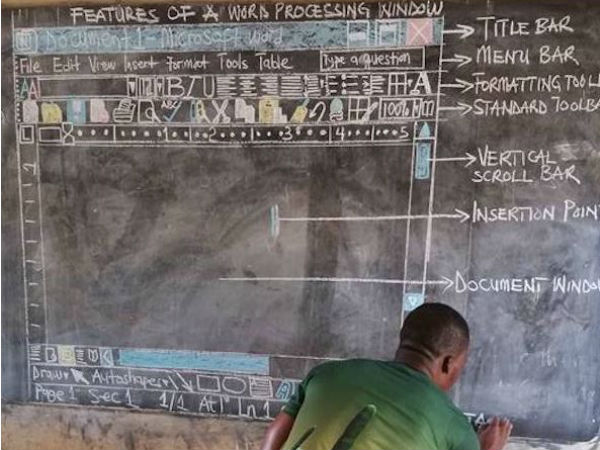 FEATURES OF A WORD PROCESSING WINDOW
Document 1 - Microsoft Word
TITLE BAR
File Edit View Insert Format Tools Table
Type a question
MENU BAR
AA
B I U
A
FORMATTING TOOL
ABC
100%
STANDARD TOOLBA
L 8 1 2 3 4 5
VERTICAL
SCROLL BAR
INSERTION POINT
DOCUMENT WINDOW
Draw Autoshapes
Page 1 Sec 1 1/1 At 1" Ln 1
STA